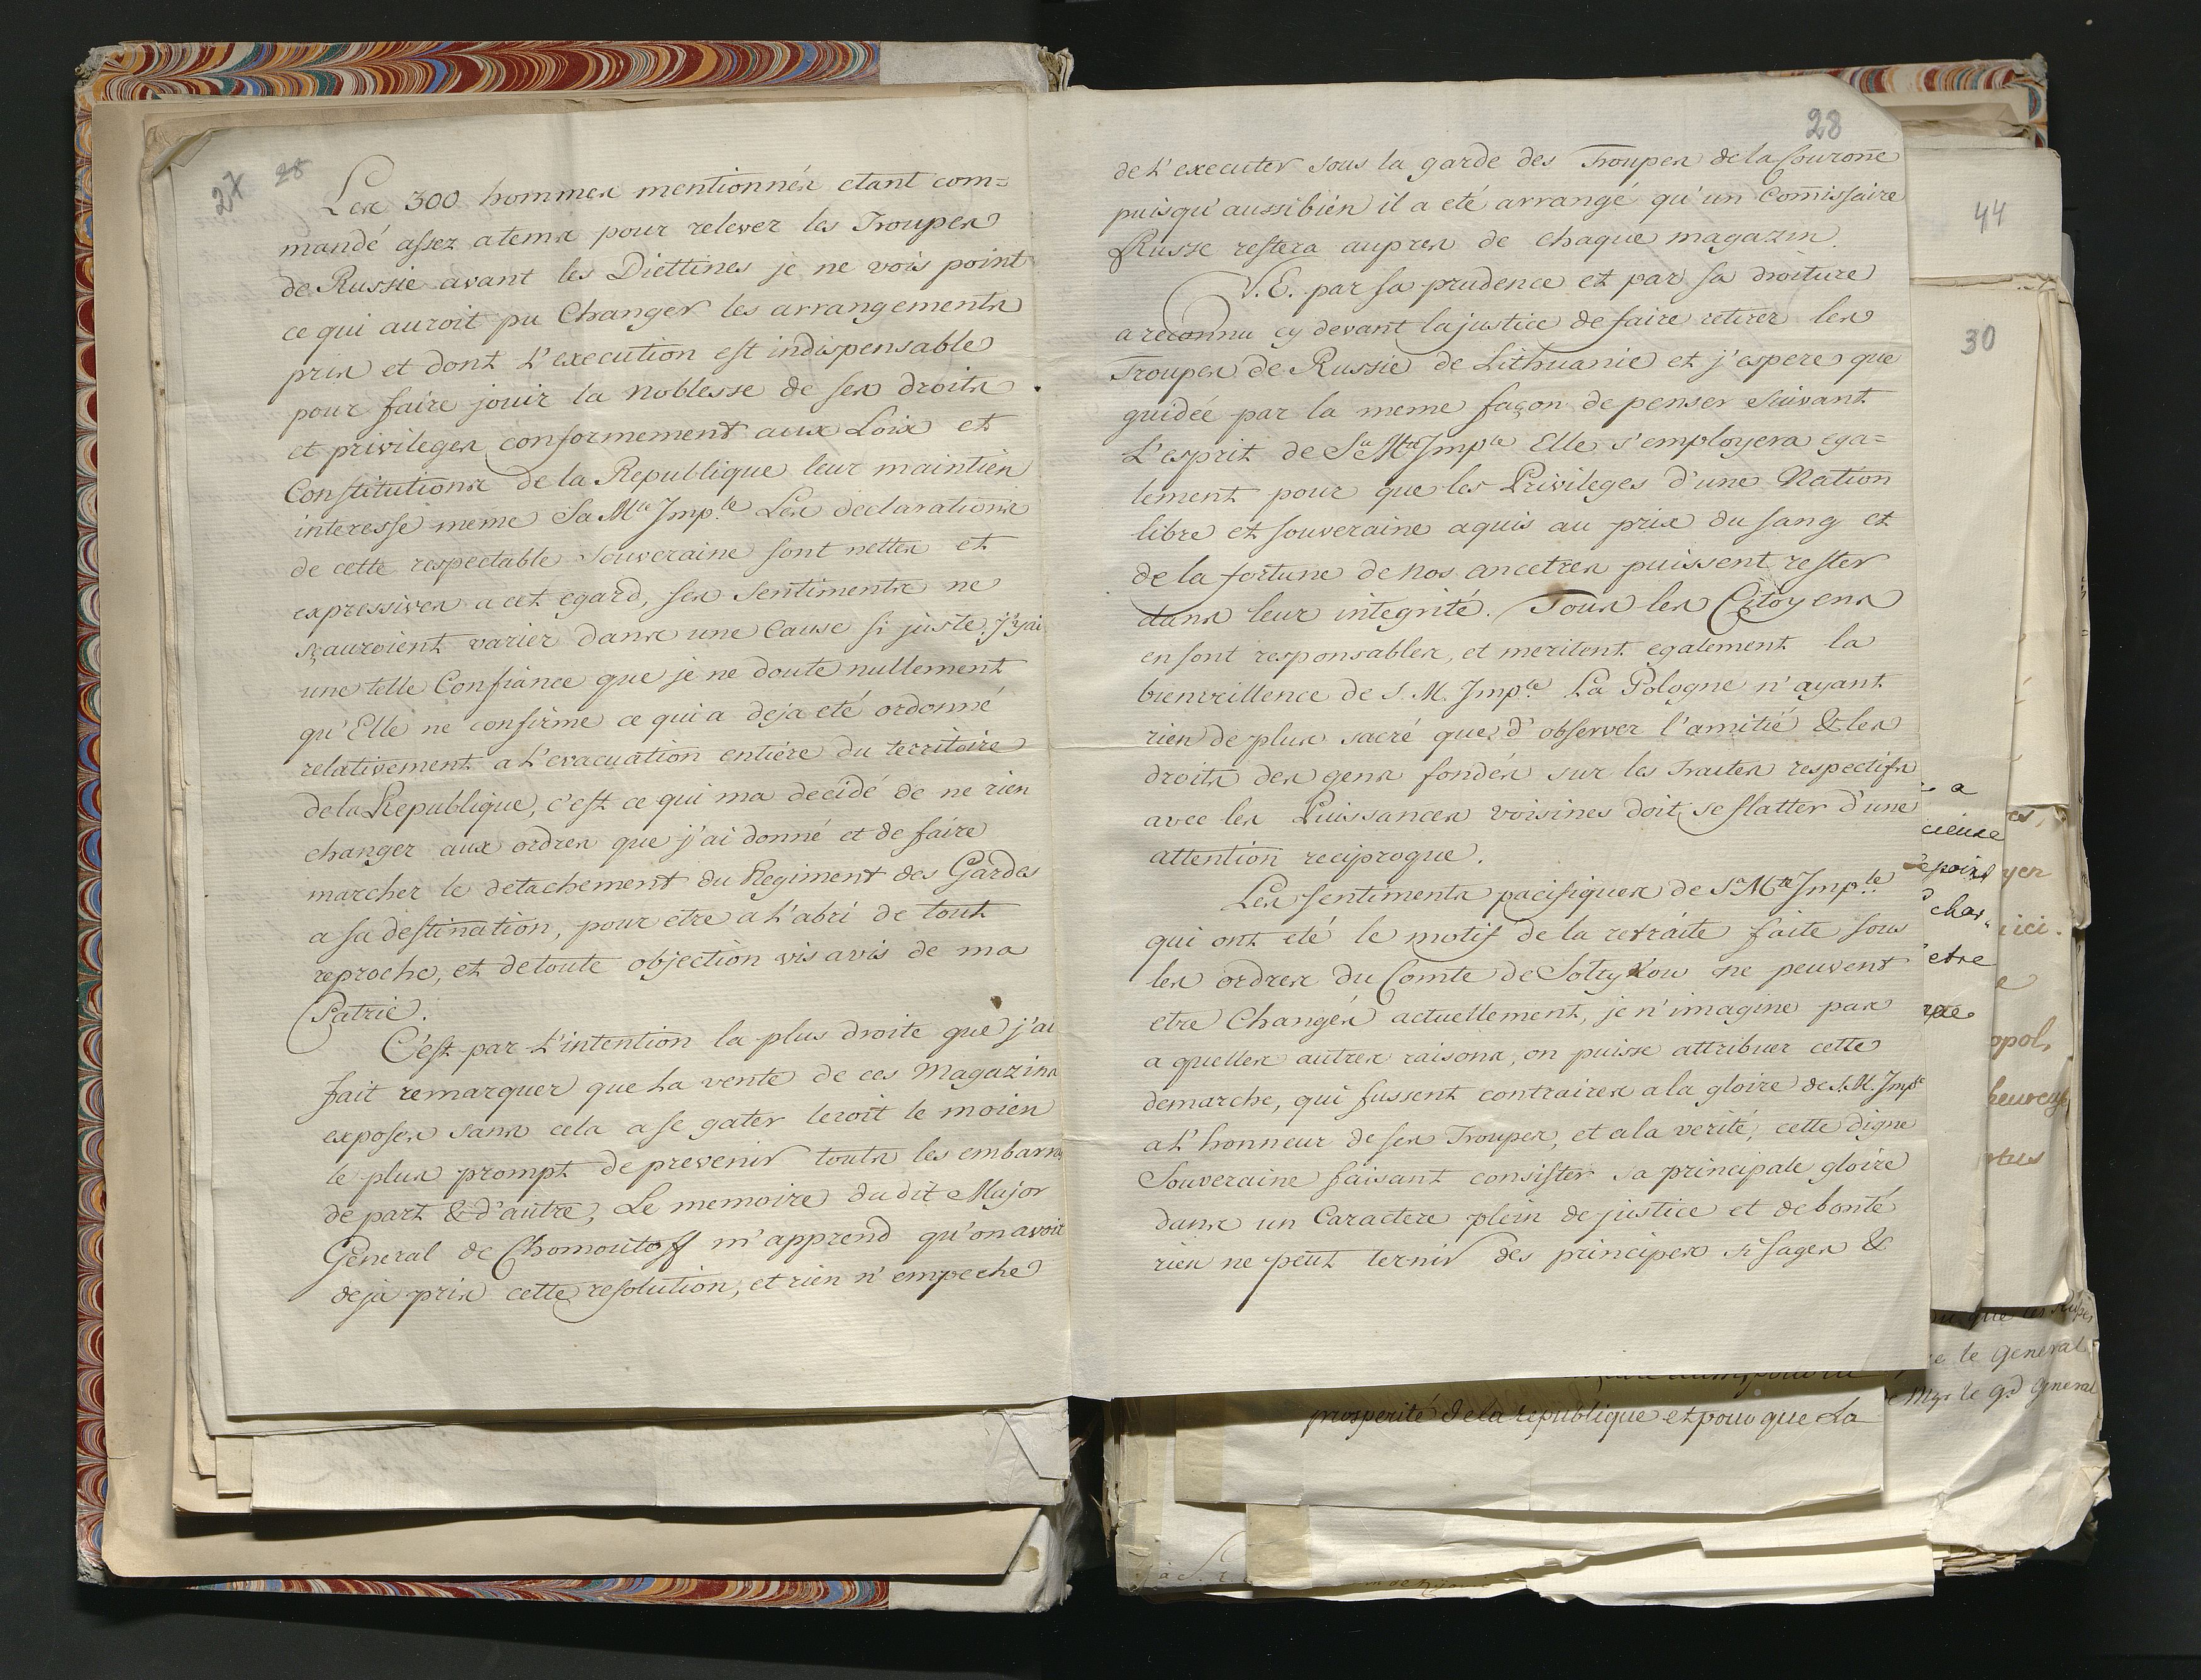 27 28
Les 300 hommes mentionnés etant com=
mandé assez atems pour relever les Troupes
de Russie avant les Diettines je ne vois point
ce qui auroit pu Changer les arrangements
pris et dont l'execution est indispensable
pour faire jouir la Noblesse de ses droits
et privileges conformement aux Loix et
Constitutions de la Republique leur maintien
interesse meme Sa Mté Imp.le Les declarations
de cette respectable Souveraine sont nettes et
expressives a cet egard, ses Sentiments ne
sçauroient varier dans une Cause si juste, j'y ai
une telle Confiance que je ne doute nullement
qu'Elle ne confirme ce qui a deja eté ordonné
relativement a l'evacuation entiére du territoire
de la Republique, c'est ce qui ma decidé de ne rien
changer aux ordres que j'ai donné et de faire
marcher le detachement du Regiment des Gardes
a sa destination, pour etre a l'abri de tout
reproche, et de toute objection vis avis de ma
Patrie.
C'est par l'intention la plus droite que j'ai
fait remarquer que la vente de ces Magazins
exposés sans cela a se gater seroit le moien
le plus prompt de prevenir touts les embarras
de part & d'autre, Le memoire dudit Major
General de Chomoutoff m'apprend qu'on avoit
deja pris cette resolution, et rien n'empeche
28
de l'executer sous la garde des Troupes de la Couronne
puisqu'aussibien il a eté arrangé qu'un Comissaire
Russe restera aupres de chaque magazin.
V.E. par sa prudence et par sa droiture
a reconnu cy devant la justice de faire retirer les
Troupes de Russie de Lithuanie et j'espere que
guidée par la meme façon de penser Suivant
L'esprit de Sa Mté Imp.le Elle s'employera ega=
lement pour que les Privileges d'une Nation
libre et souveraine aquis au prix du sang et
de la fortune de nos ancetres puissent rester
dans leur integrité. Tous les Citoyens
en sont responsables, et meritent egalement la
bienveillence de S. M. Imp.le La Pologne n'ayant
rien de plus sacré que d'observer l'amitié & les
droits des gens fondés sur les Traites respectifs
avec les Puissances voisines doit se flatter d'une
attention reciproque.
Les sentiments pacifiques de Sa Mté Imp.le
qui ont eté le motif de la retraite faite sous
les ordres du Comte de Soltykow ne peuvent
etre Changés actuellement, je n'imagine pas
a quelles autres raisons, on puisse attribuer cette
demarche, qui fussent contraires a la gloire de S.M. Imp.le
a l'honneur de ses Troupes, et a la verité, cette digne
Souveraine faisant consister sa principale gloire
dans un Caractere plein de justice et de bonté
rien ne peut ternir des principes si sages &
prosperité de la republique et pour que la
44
30
a
cieuse
point
char
etre
yer
ici.
opol,
heureuse
que les
le General
Mgr le gd General